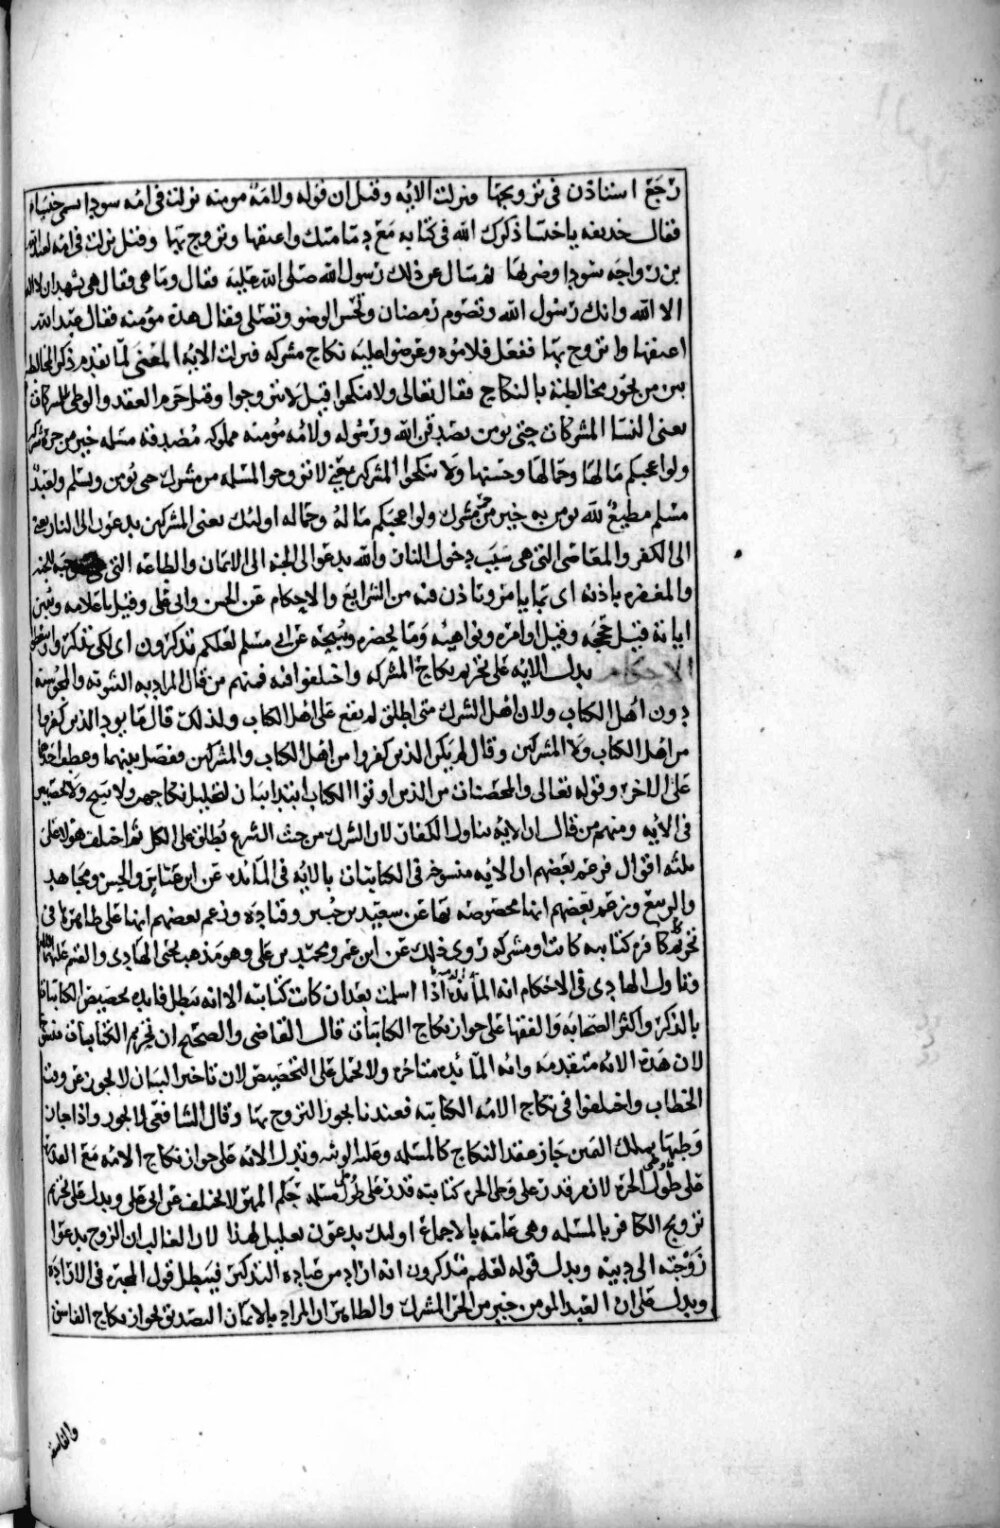 رجع استاذن في تزويجها فنزلت الايه وقيل ان قوله ولامة مومنه نزلت في امه سودا اسمها خنساء
فقال حذيفه يا خنسا ذكرك الله في كتابه مع دمامتك واعتقها وتزوج بها وقيل نزلت في امه لعبدالله
بن رواحه سودا وضربها ثم سال عن ذلك رسول الله صلى الله عليه فقال وما هي فقال هي تشهد ان لا اله
الا الله وانك رسول الله وتصوم رمضان وتحسن الوضو وتصلي فقال هذه مومنه فقال عبدالله
اعتقها واتزوج بها ففعل فلاموه وعرضوا عليه نكاح مشركه فنزلت الايه المعنى لما تقدم ذكر المخالطه
بين من يجوز مخالطته بالنكاح فقال تعالى ولا تنكحوا قيل لا تتزوجوا وقيل حرم العقد والوطي المشركات
يعني النسا المشركات حتى يومن يصدقن الله ورسوله ولامه مومنه مملوكه مصدقه مسلمه خير من حره مشركه
ولو اعجبكم مالها وجمالها وحسنها ولا تنكحوا المشركين يعني لا تزوجوا المسلمه من مشرك حتى يومن ويسلم ولعبد
مسلم مطيع لله يومن به خير من حر مشرك ولو اعجبكم ماله وجماله اولئك يعني المشركين يدعون الى النار يعني
الى الكفر والمعاصي التي هي سبب دخول النار والله يدعو الى الجنه الى الايمان والطاعه التي هي موجبه للجنه
والمغفره باذنه اي بما يامر وياذن فيه من الشرايع والاحكام عن الحسن وابي علي وقيل باعلامه ويبين
اياته قيل حججه وقيل اوامره ونواهيه وما يحضره ويبيحه عن ابي مسلم لعلهم يتذكرون اي لكي يتذكروا ويتعظوا
الاحكام يدل الايه على تحريم نكاح المشركه واختلفوا فيه فمنهم من قال المراد به الثنويه والمجوسيه
دون اهل الكتاب ولان اهل الشرك متى اطلق لم يقع على اهل الكتاب ولذلك قال ما يود الذين كفروا
من اهل الكتاب ولا المشركين وقال لم يكن الذين كفروا من اهل الكتاب والمشركين وفصل بينهما وعطف احدهما
على الاخر وقوله تعالى والمحصنات من الذين اوتوا الكتاب ابتدا بيان لتحليل نكاحهن ولا نسخ ولا تخصيص
في الايه ومنهم من قال ان الايه تتناول الكفار لان الشرك من حيث الشرع يطلق على الكل ثم اختلف هولا على
ثلثه اقوال فزعم بعضهم ان الايه منسوخه في الكتابيات بالايه في المائده عن ابن عباس والحسن ومجاهد
والربيع وزعم بعضهم انها مخصوصه بها عن سعيد بن جبير وقتاده وزعم بعضهم انها على ظاهرها في
تحريم كل كافره كتابيه كانت او مشركه روي ذلك عن ابن عمر ومحمد بن علي وهو مذهب يحيى الهادي والقسم عليهما السلام
وتاول الهادي في الاحكام ايه المائده اذا اسلمت بعد ان كانت كتابيه الا انه يبطل فايده تخصيص الكتابيات
بالذكر واكثر الصحابه والفقها على جواز نكاح الكتابيات قال القاضي والصحيح ان تحريم الكتابيات منسوخ
لان هذه الايه متقدمه وايه المائده متاخره ولا تحمل على التخصيص لان تاخير البيان لا يجوز عن وقت
الخطاب واختلفوا في نكاح الامه الكتابيه فعندنا يجوز التزوج بها وقال الشافعي لا يجوز واذا جاز
وطيها بملك اليمين جاز عقد النكاح كالمسلمه وعليه الوثنيه وتدل الايه على جواز نكاح الامه مع القدره
على طول الحره لان من قدر على وطي الحره كتابيه قدر على طول مسلمه حكم المهر لا يختلف عن ابي علي ويدل على تحريم
تزويج الكافر بالمسلمه وهي عامه بالاجماع اوليك يدعون تعليل لهذا لان الغالب ان الزوج يدعو
زوجته الى دينه ويدل قوله لعلهم يتذكرون انه اراد من عباده التذكر فيبطل قول المجبره في الاراده
ويدل على ان العبد المومن خير من الحر المشرك والظاهر ان المراد بالايمان التصديق لجواز نكاح الفاسق
والفاسقه